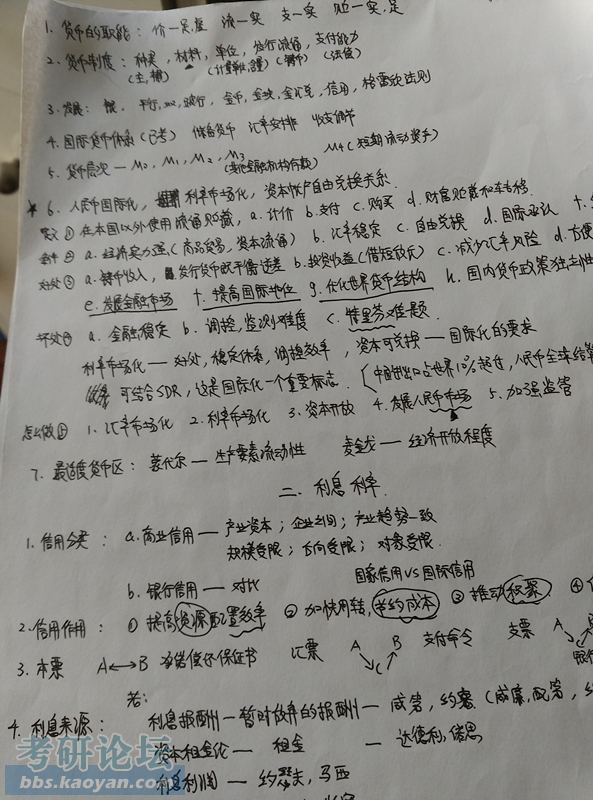 1. 货币的职能: 价一尺,量 流一实 支一实 贮一实,足
2. 货币制度: 种类, 材料, 单位, 发行流通, 支付能力
(主,辅) (计算单位,含量) (铸币) (法偿)
3. 发展: 银. 平行, 双, 跛行, 金币, 金块, 金汇兑, 信用, 格雷欣法则
4. 国际货币体系(已考) 储备货币 汇率安排 收支调节
5. 货币层次一M0, M1, M2, M3 M4(短期流动资产)
(其他金融机构存款)
* 6. 人民币国际化, 利率市场化, 资本帐户自由兑换关系.
定义① 在本国以外使用流通贮藏, a. 计价 b. 支付 c. 购买 d. 财富贮藏和转移.
条件② a. 经济实力强(商品贸易,资本流通) b. 汇率稳定 c. 自由兑换 d. 国际承认
好处③ a. 铸币收入, 发行货币既平衡逆差 b. 投资收益(借短放长) c. 减少汇率风险 d. 方便
e. 发展金融市场 f. 提高国际地位 g. 优化世界货币结构 h. 国内货币政策独立性
坏处④ a. 金融稳定 b. 调控,监测难度 c. 特里芬难题.
利率市场化 — 好处, 稳定体系, 调控效率, 资本可兑换 — 国际化的要求
可结合SDR, 这是国际化一个重要标志. (中国进出口占世界10%起过, 人民币全球结算
怎么做⑤ 1. 汇率市场化 2. 利率市场化 3. 资本开放 4. 发展人民币市场 5. 加强监管
7. 最适度货币区: 蒙代尔 — 生产要素流动性 麦金龙 — 经济开放程度
二. 利息 利率.
1. 信用分类: a. 商业信用 — 产业资本; 企业之间; 产业趋势一致
规模受限; 方向受限; 对象受限.
b. 银行信用 — 对比 国家信用VS国际信用
2. 信用作用: ① 提高资源配置效率 ② 加快周转, 节约成本 ③ 推动积聚 ④
3. 本票 A↔B 净偿还保证书 汇票 A B 支付命令 支票 A
银行
4. 利息来源: 利息报酬 — 暂时放弃的报酬 — 威第, 约塞(威廉,配第,
资本租金化 — 租金 — 达德利,诺思
利息利润 — 约瑟夫, 马西
考研论坛
bbs.kaoyan.com